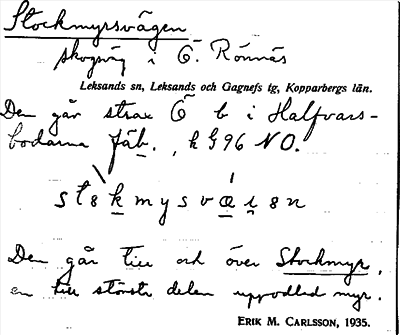 Stockmyrsvägen
skogsväg i Ö. Rönnäs
Leksands sn, Leksands och Gagnefs tg, Kopparbergs län.
Den går strax Ö b i Halfvars-
bodarna fäb., k G96 NO.
Den går till och över Stockmyr,
en till största delen uppodlad myr.
ERIK M. CARLSSON, 1935.